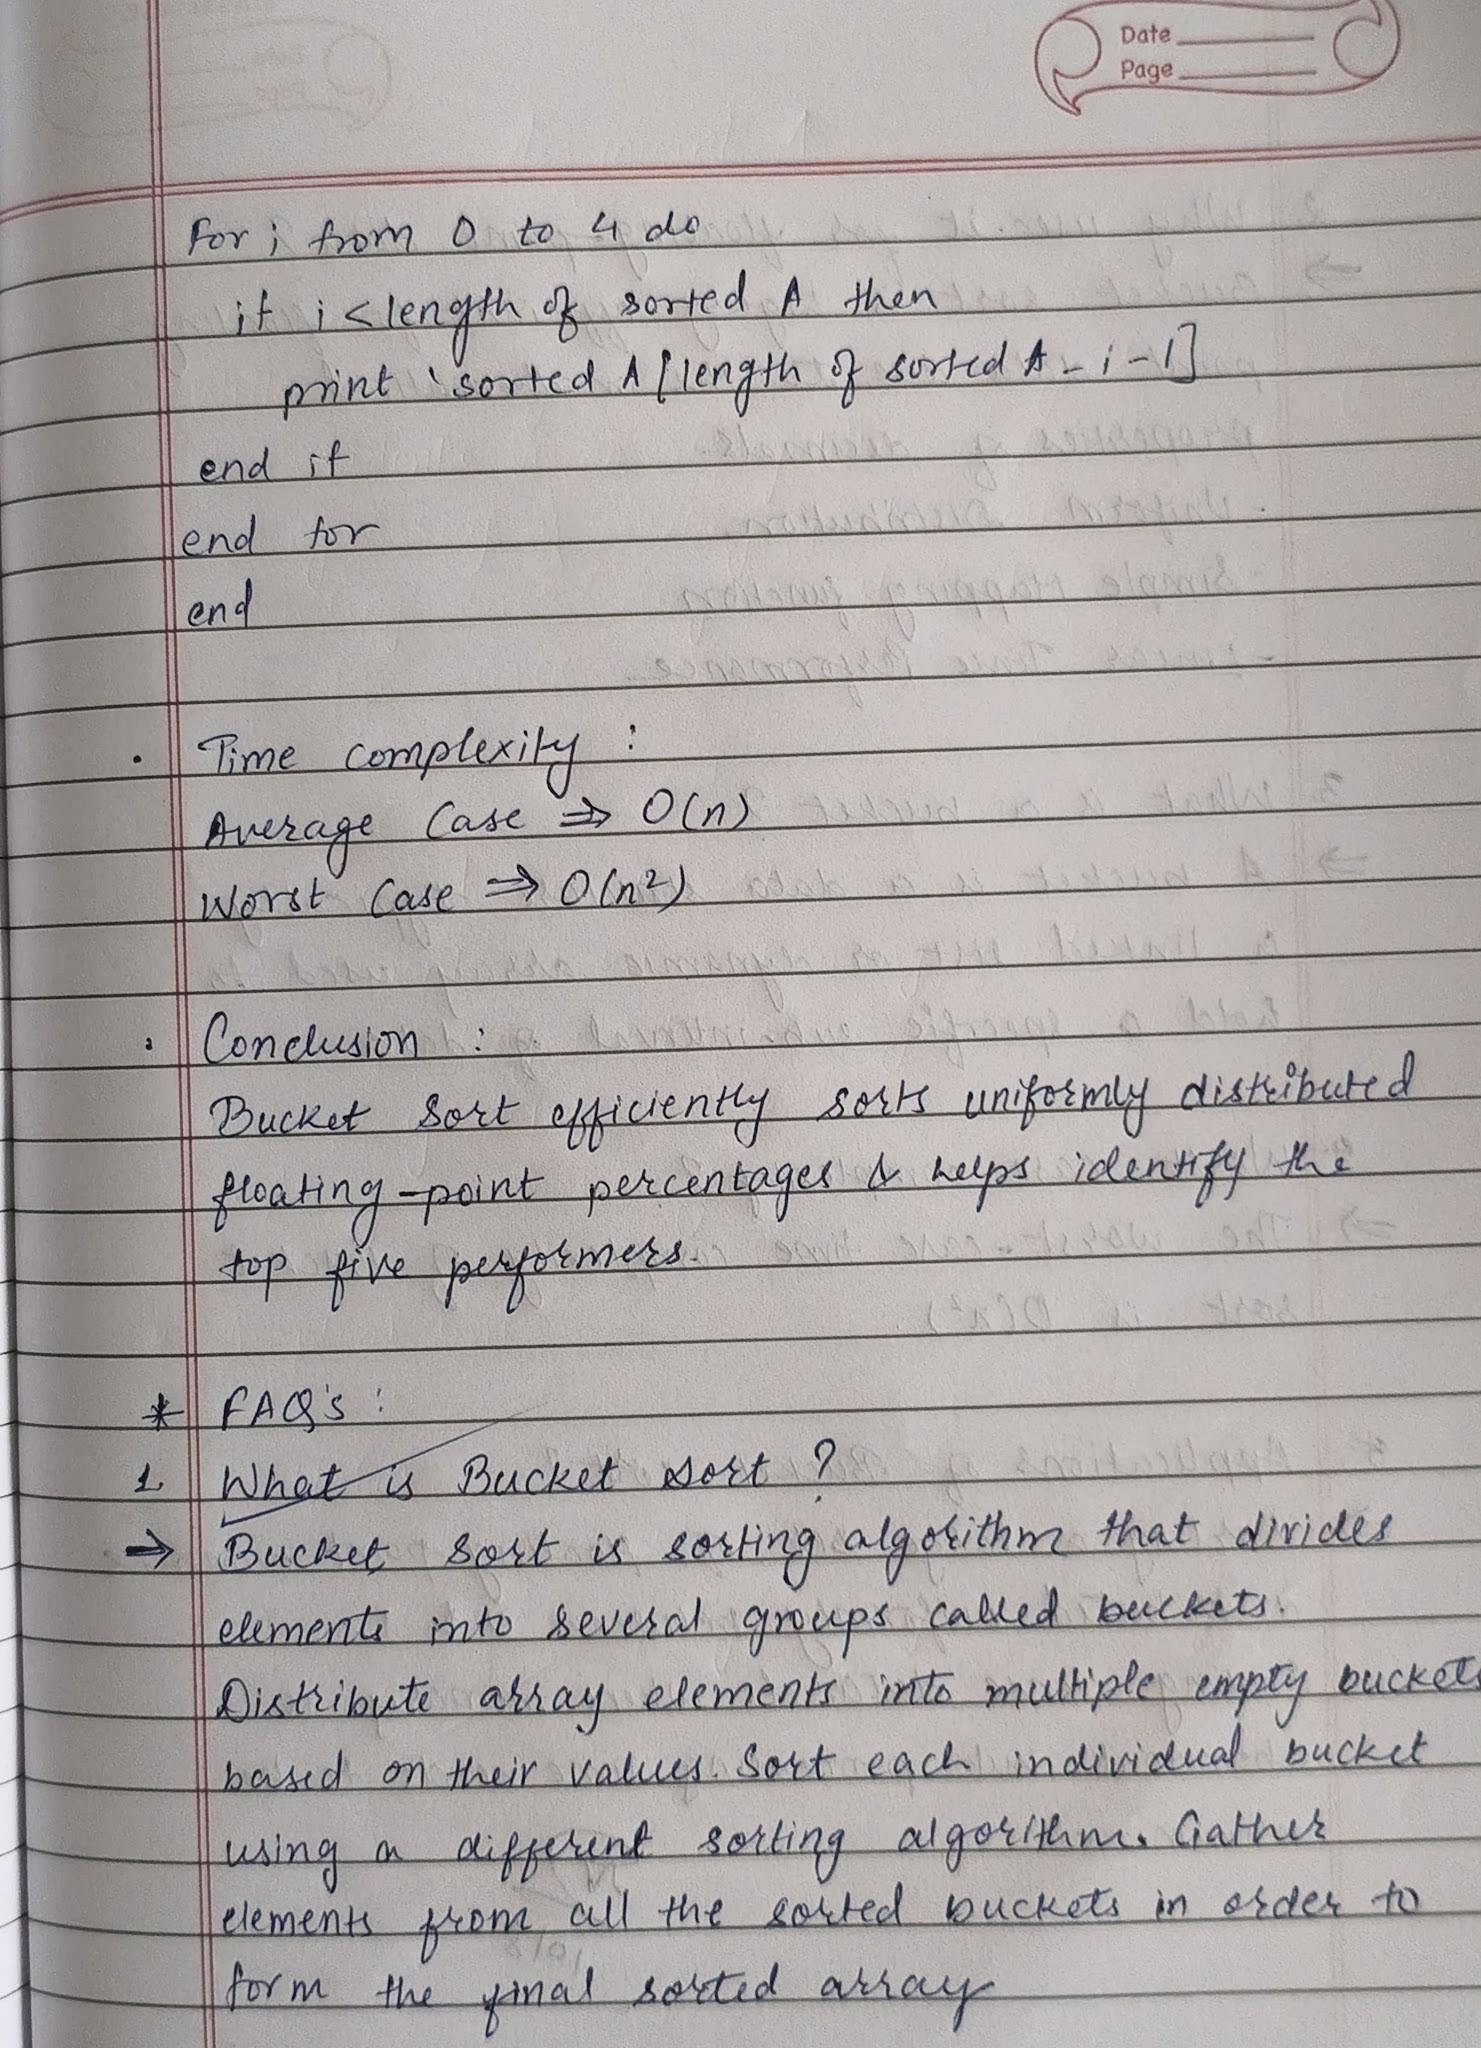 Date
Page
For i from 0 to 4 do
if i < length of sorted A then
print sorted A [length of sorted A - i - 1]
end if
end for
end
. Time complexity :
Average Case ⇒ O(n)
Worst Case ⇒ O(n²)
. Conclusion :
Bucket Sort efficiently sorts uniformly distributed
floating-point percentages & helps identify the
top five performers.
* FAQ's :
1. What is Bucket sort ?
⇒ Bucket Sort is sorting algorithm that divides
elements into several groups called buckets.
Distribute array elements into multiple empty buckets
based on their values. Sort each individual bucket
using a different sorting algorithm. Gather
elements from all the sorted buckets in order to
form the final sorted array